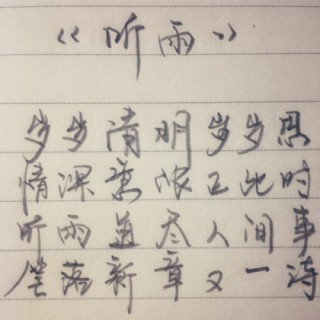 《听雨》
岁岁清明岁岁思
情深意浓正此时
听雨道尽人间事
坐落新章又一诗